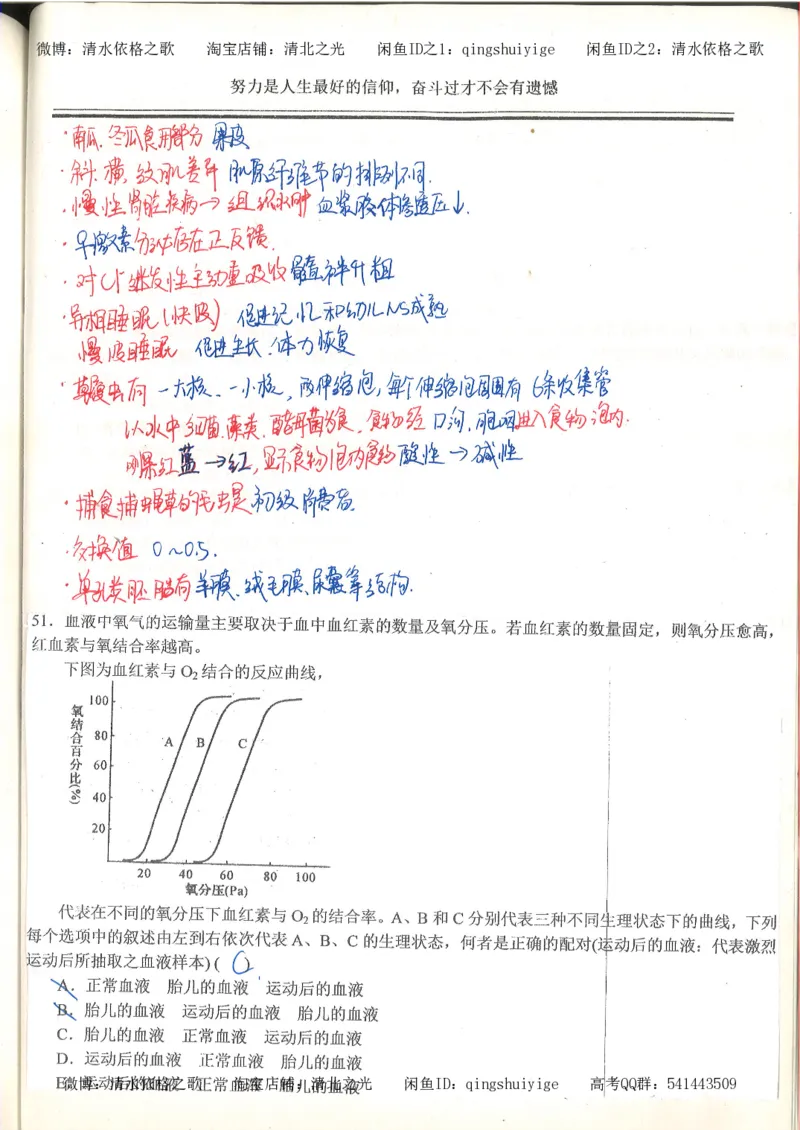 微博：清水依格之歌 淘宝店铺：清北之光 闲鱼ID之1：qingshuiyige 闲鱼ID之2：清水依格之歌
努力是人生最好的信仰，奋斗过才不会有遗憾
·南瓜、冬瓜食用部分 果皮
·斜、横纹肌差异 肌原纤维节的排列不同.
·慢性肾脏疾病→组织水肿 血浆胶体渗透压↓.
·孕激素分泌存在正反馈.
·对Cl⁻继发性主动重吸收 髓袢升粗
·异相睡眠(快波) 促进记忆和幼儿NS成熟
慢波睡眠 促进生长、体力恢复
·草履虫有 一大核、一小核，两伸缩泡，每个伸缩泡周围有 6条收集管
以水中细菌、藻类、酵母菌为食，食物经 口沟、胞咽进入食物泡内.
刚果红蓝→红，显示食物泡内食物酸性→碱性
·捕食捕蝇草的毛虫是初级消费者
·交换值 0～0.5.
·单孔类胚胎有羊膜、绒毛膜、尿囊等结构.
51．血液中氧气的运输量主要取决于血中血红素的数量及氧分压。若血红素的数量固定，则氧分压愈高，
红血素与氧结合率越高。
下图为血红素与 O₂ 结合的反应曲线，
氧结合百分比(%)
100
80
60
40
20
A B C
20 40 60 80 100
氧分压(Pa)
代表在不同的氧分压下血红素与 O₂ 的结合率。A、B 和 C 分别代表三种不同生理状态下的曲线，下列
每个选项中的叙述由左到右依次代表 A、B、C 的生理状态，何者是正确的配对(运动后的血液：代表激烈
运动后所抽取之血液样本) ( C )
A．正常血液 胎儿的血液 运动后的血液
B．胎儿的血液 运动后的血液 胎儿的血液
C．胎儿的血液 正常血液 运动后的血液
D．运动后的血液 正常血液 胎儿的血液
E．运动后的血液 正常血液 胎儿的血液
微博：清水依格之歌 淘宝店铺：清北之光 闲鱼ID：qingshuiyige 高考QQ群：541443509